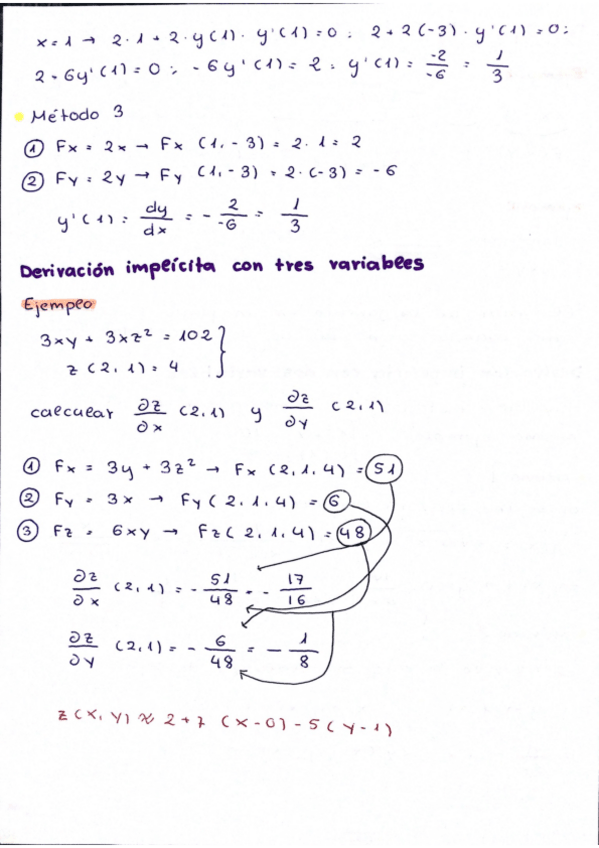 x = 1 → 2 · 1 + 2 · y(1) · y'(1) = 0 ; 2 + 2(-3) · y'(1) = 0 ;
2 - 6y'(1) = 0 ; - 6y'(1) = 2 ; y'(1) = -2/-6 = 1/3
Método 3
① Fx = 2x → Fx (1, -3) = 2 · 1 = 2
② Fy = 2y → Fy (1, -3) = 2 · (-3) = - 6
y'(1) = dy/dx = - 2/-6 = 1/3
Derivación implícita con tres variables
Ejemplo
3xy + 3xz² = 102
z (2, 1) = 4
calcular ∂z/∂x (2,1) y ∂z/∂y (2,1)
① Fx = 3y + 3z² → Fx (2, 1, 4) = 51
② Fy = 3x → Fy (2, 1, 4) = 6
③ Fz = 6xy → Fz (2, 1, 4) = 48
∂z/∂x (2,1) = - 51/48 = - 17/16
∂z/∂y (2,1) = - 6/48 = - 1/8
z(x, y) ≈ 2 + 7 (x-0) - 5 (y-1)